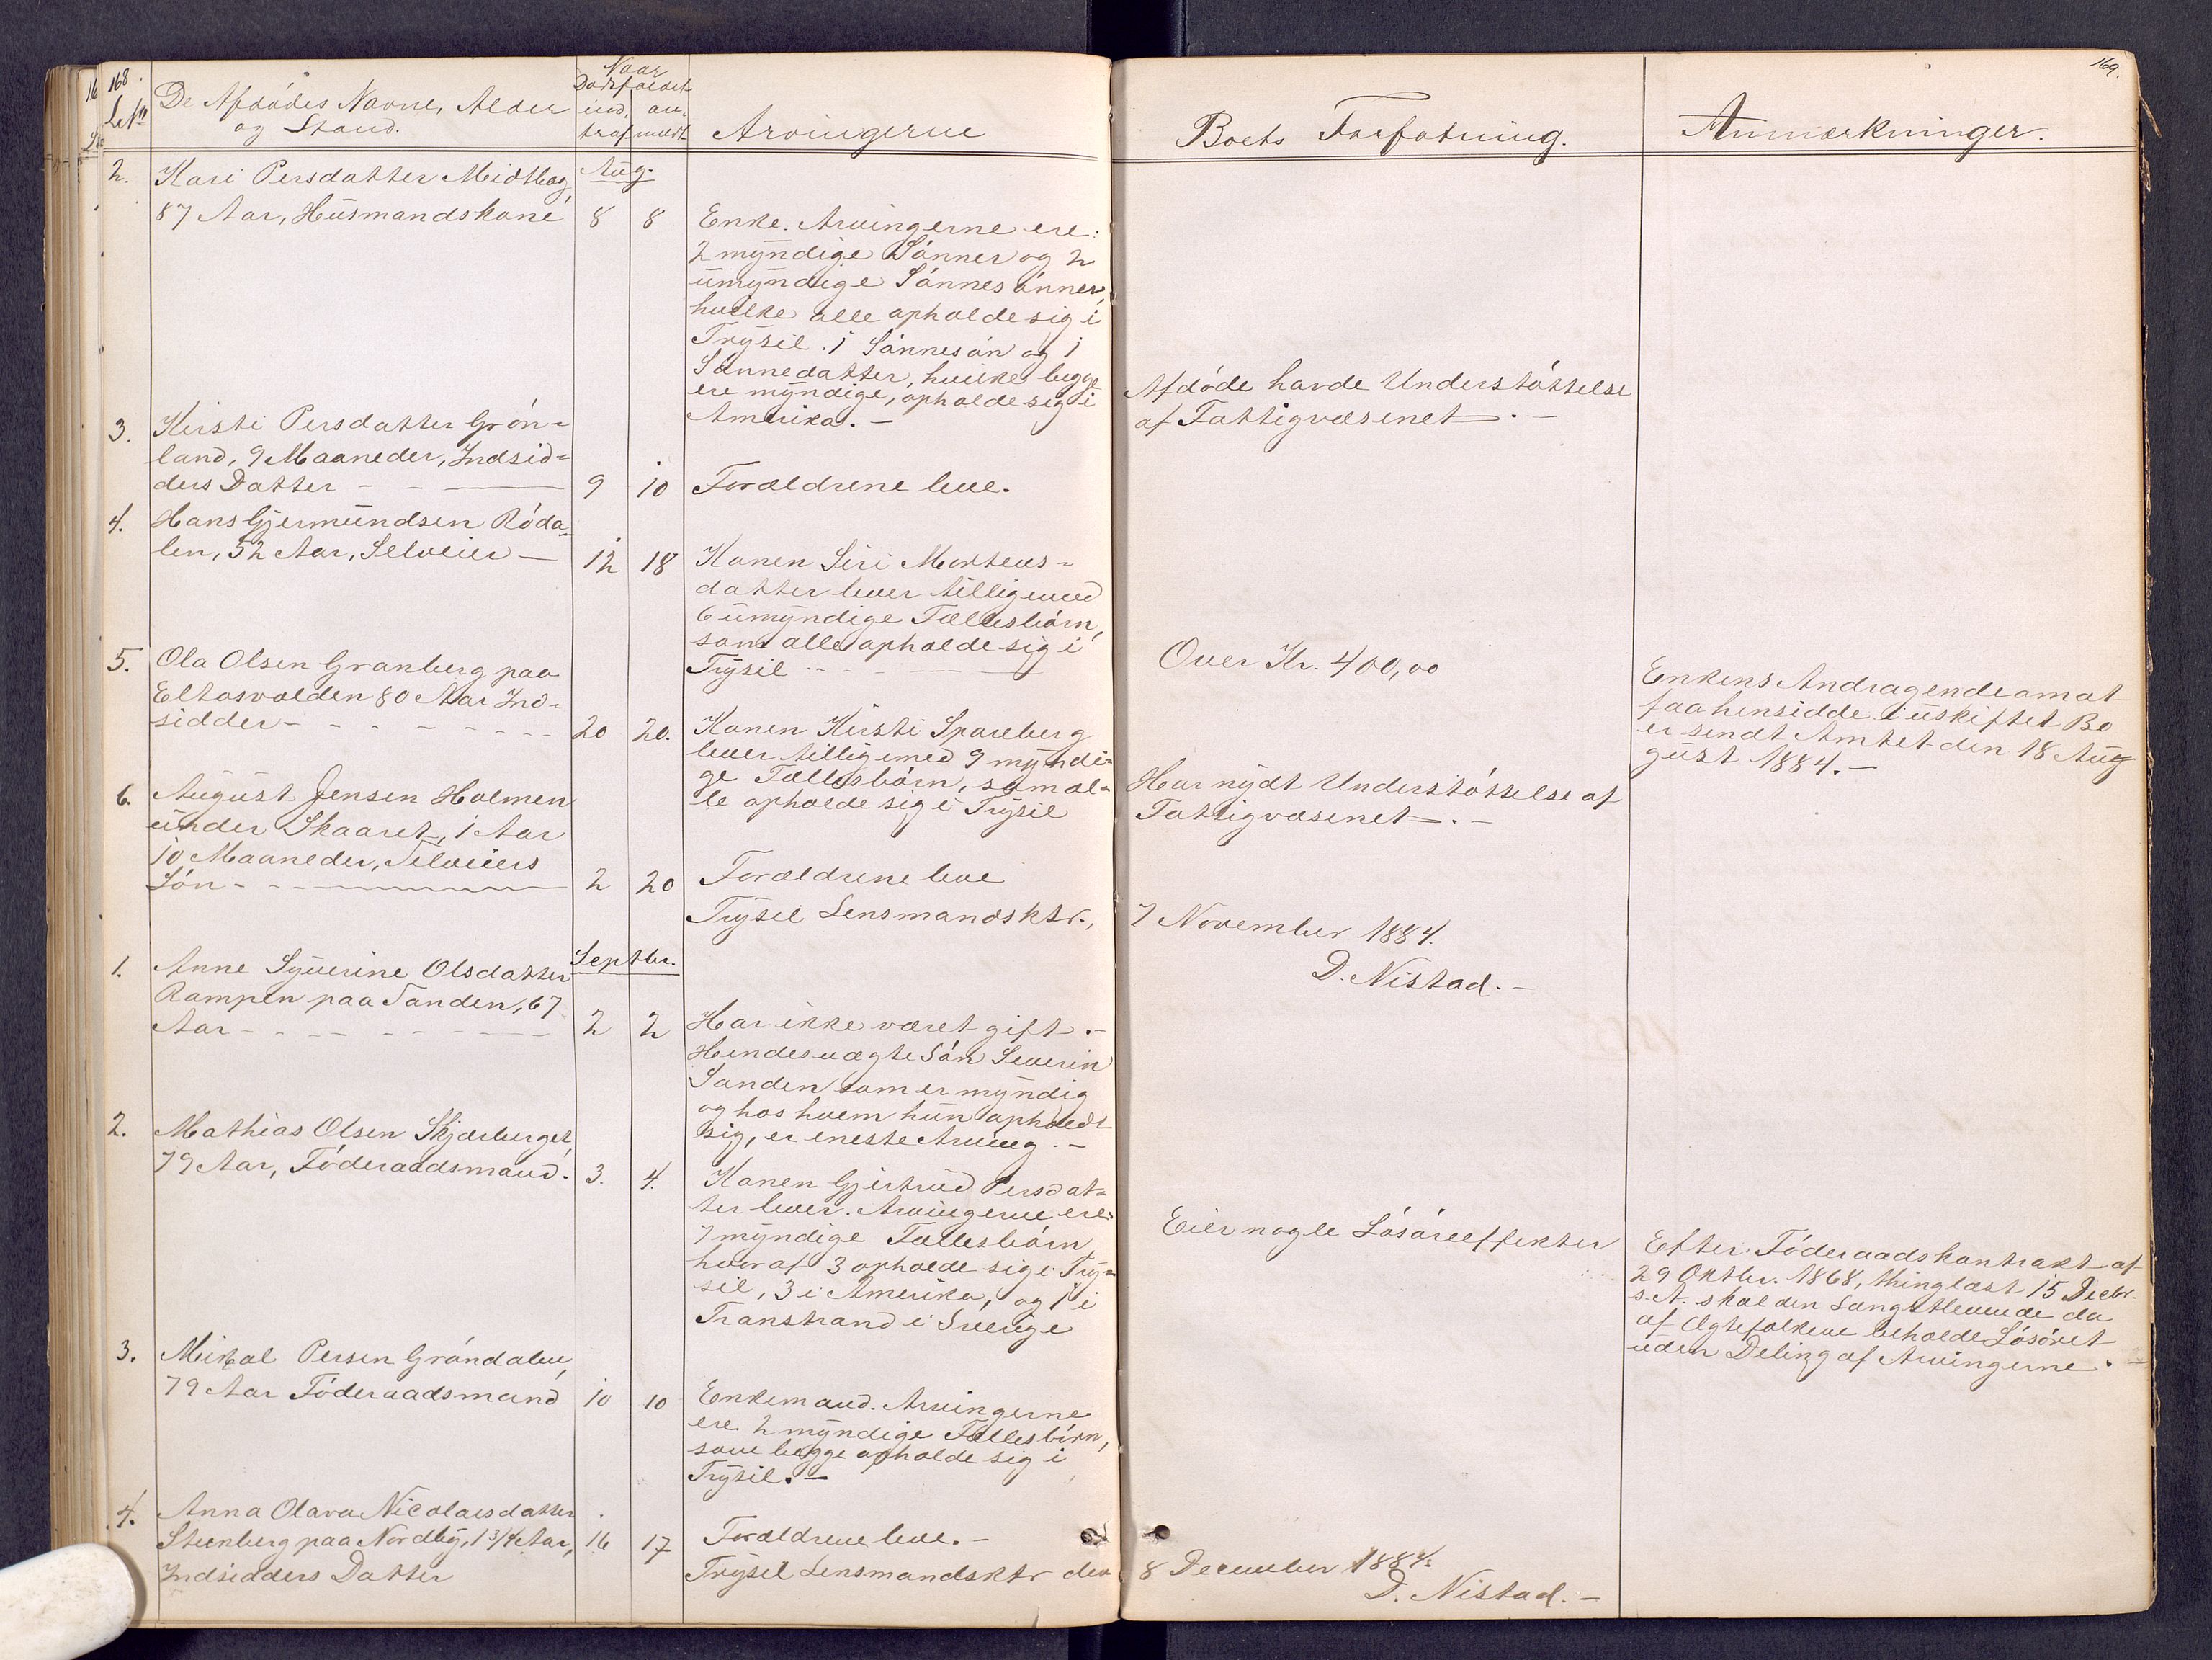 168.
LeNo
De Afdödes Navne, Alder
og Stand.
Naar
Dödsfaldet
ind-
traf
an-
meldt
Arvingerne
169.
Boets Forfatning.
Anmærkninger.
Aug.
2.
Kari Persdatter Midthag,
87 Aar, Husmandskone
8
8
Enke. Arvingerne ere:
2 myndige Sönner og 2
umyndige Sönnesönner,
hvilke alle opholde sig i
Trysil. 1 Sönnesön og 1
Sönnedatter, hvilke begge
ere myndige, opholde sig i
Amerika. –
Afdöde havde Understöttelse
af Fattigvæsenet. –
3.
Kirsti Persdatter Grön-
land, 9 Maaneder, Indsid-
ders Datter
9
10
Forældrene leve.
4.
Hans Gjermundsen Röda-
len, 52 Aar, Selveier –
12
18
Konen Siri Mortens-
datter lever tilligemed
6 umyndige Fællesbörn,
som alle opholde sig i
Trysil
Over Kr. 400,00
Enkens Andragende om at
faa hensidde i uskiftet Bo
er sendt Amtet den 18 Aug
gust 1884. –
5.
Ola Olsen Granberg paa
Eltasvolden 80 Aar Ind-
sidder
20
20.
Konen Kirsti Spareberg
lever tilligemed 9 myndi-
ge Fællesbörn, som al-
le opholde sig i Trysil
Har nydt Understöttelse af
Fattigvæsenet. –
6.
August Jensen Holmen
under Skaaret, 1 Aar
10 Maaneder, Selveiers
Sön
2
20
Forældrene leve
Trysil Lensmandsktr.,
7 November 1884.
D. Nistad. –
Septbr.
1.
Anne Syverine Olsdatter
Rampen paa Sanden, 67
Aar
2
2
Har ikke været gift. –
Hendes uægte Sön Severin
Sanden som er myndig
og hos hvem hun opholdt
sig, er eneste Arving. –
2.
Mathias Olsen Skjærberget,
79 Aar, Föderaadsmand.
3.
4.
Konen Gjertrud Persdat-
ter lever. Arvingerne ere:
7 myndige Fællesbörn
hvoraf 3 opholde sig i Try-
sil, 3 i Amerika, og 1 i
Transtrand i Sverige
Eier nogle Lösöreeffekter
Efter Föderaadskontrakt af
29 Oktbr. 1868, thinglæst 15 Decbr.
s. A. skal den Længstlevende da
af Ægtefolkene beholde Lösöret
uden Deling af Arvingerne. –
3.
Mikal Persen Gröndalen,
79 Aar Föderaadsmand
10
10
Enkemand. Arvingerne
ere 2 myndige Fællesbörn,
som begge opholde sig i
Trysil. –
4.
Anna Olava Nicolaisdatter
Steenberg paa Nordby, 1 3/4 Aar,
Indsidders Datter
16
17
Forældrene leve. –
Trysil Lensmandsktr den
8 December 1884.
D. Nistad. –